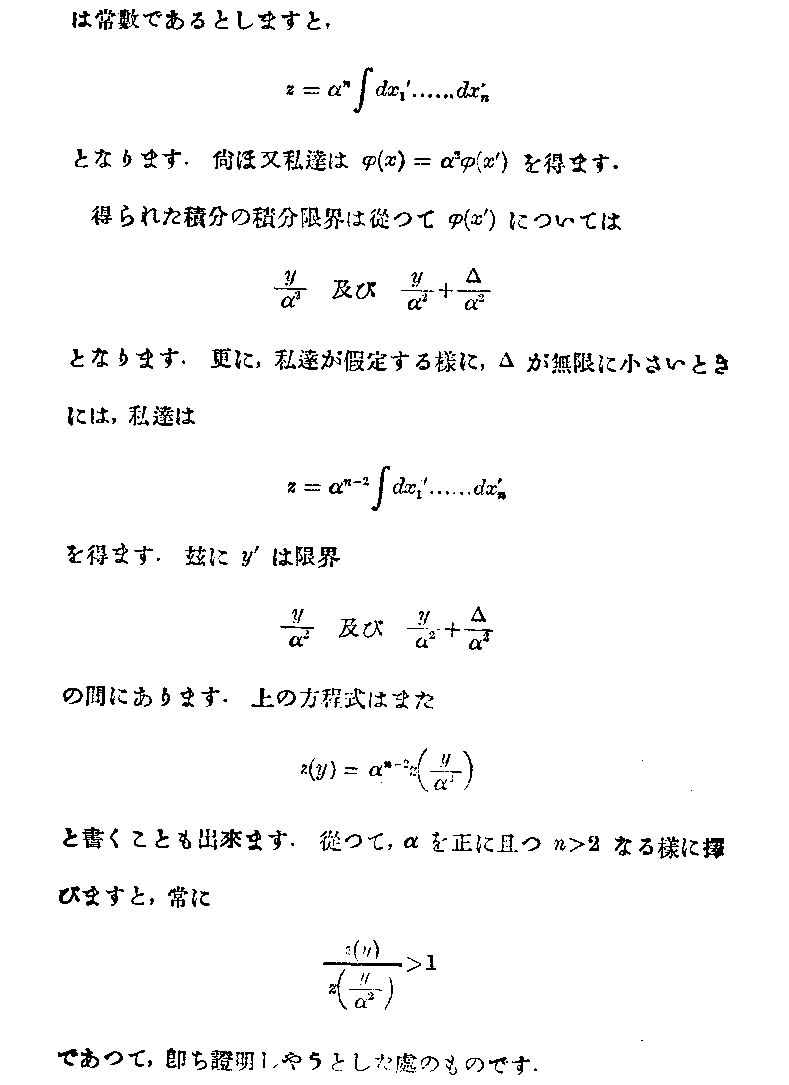 は常數であるとしますと,
z = α^n ∫ dx₁′……dx′ₙ
となります. 尙ほ又私達は φ(x) = α²φ(x′) を得ます.
得られた積分の積分限界は從つて φ(x′) については
y/α² 及び y/α² + Δ/α²
となります. 更に, 私達が假定する樣に, Δ が無限に小さいとき
には, 私達は
z = α^{n-2} ∫ dx₁′……dx′ₙ
を得ます. 玆に y′ は限界
y/α² 及び y/α² + Δ/α²
の間にあります. 上の方程式はまた
z(y) = α^{n-2} z(y/α²)
と書くことも出來ます. 從つて, α を正に且つ n>2 なる樣に擇
びますと, 常に
z(y) / z(y/α²) > 1
であつて, 卽ち證明しやうとした處のものです.